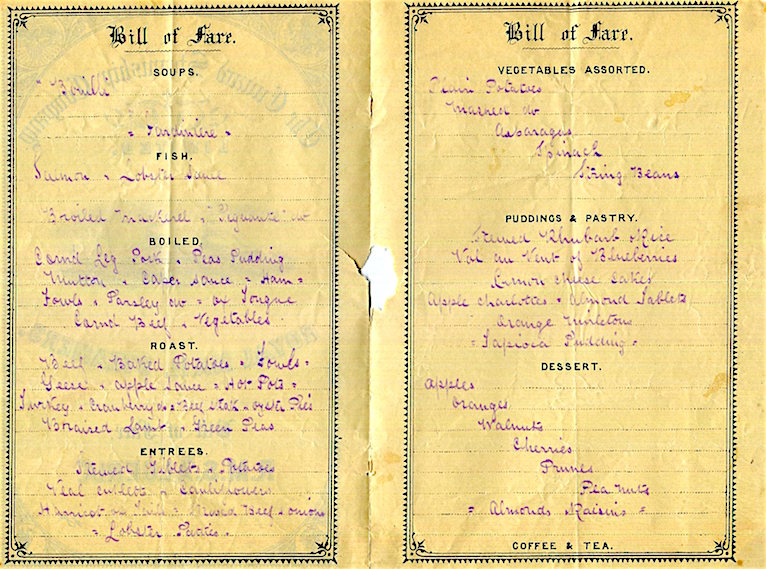 Bill of Fare.
SOUPS.
"Bouilli"
" Jardiniere "
FISH.
Salmon " Lobster Sauce
Broiled Mackerel " "Piquante" do
BOILED.
Cornd Leg Pork " Peas Pudding
Mutton " Caper Sauce " Ham "
Fowls " Parsley do " Ox Tongue
Cornd Beef " Vegetables
ROAST.
Beef " Baked Potatoes " Fowls "
Geese " Apple Sauce " Hot Pots "
Turkey " Cranberry do " Beef Steak " Oyster Pies
Braised Lamb " Green Peas
ENTREES.
Stewed Giblets " Potatoes
Veal Cutlets " Cauliflowers
Harricot Beef & Onions
" Lobster Patties "
Bill of Fare.
VEGETABLES ASSORTED.
Plain Potatoes
Mashed do
Asparagus
Spinach
String Beans
PUDDINGS & PASTRY.
Stewed Rhubarb & Rice
Vol au Vent of Blueberries
Lemon Cheese Cakes
Apple Charlottes " Almond Tablets
Orange Mirletons
" Tapioca Pudding "
DESSERT.
Apples
Oranges
Walnuts
Cherries
Prunes
Pea Nuts
" Almonds & Raisins "
COFFEE & TEA.